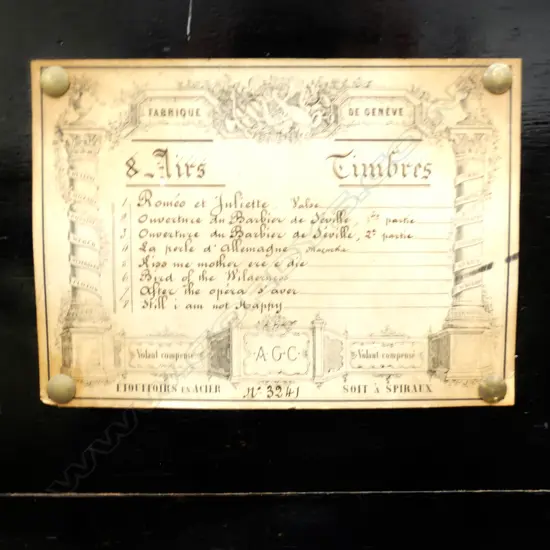 FABRIQUE DE GENÈVE
8 Airs Timbres
1 Roméo et Juliette Valse
2 Ouverture du Barbier de Séville, 1re partie
3 Ouverture du Barbier de Séville, 2e partie
4 La perle d'Allemagne Mazurka
5 Kiss me mother ere i die
6 Bird of the Wilderness
7 After the opéra s'over
8 Still i am not Happy
Volant compensé A.G.C. Volant compensé
ETOUFFOIRS EN ACIER No 3241 SOIT À SPIRAUX